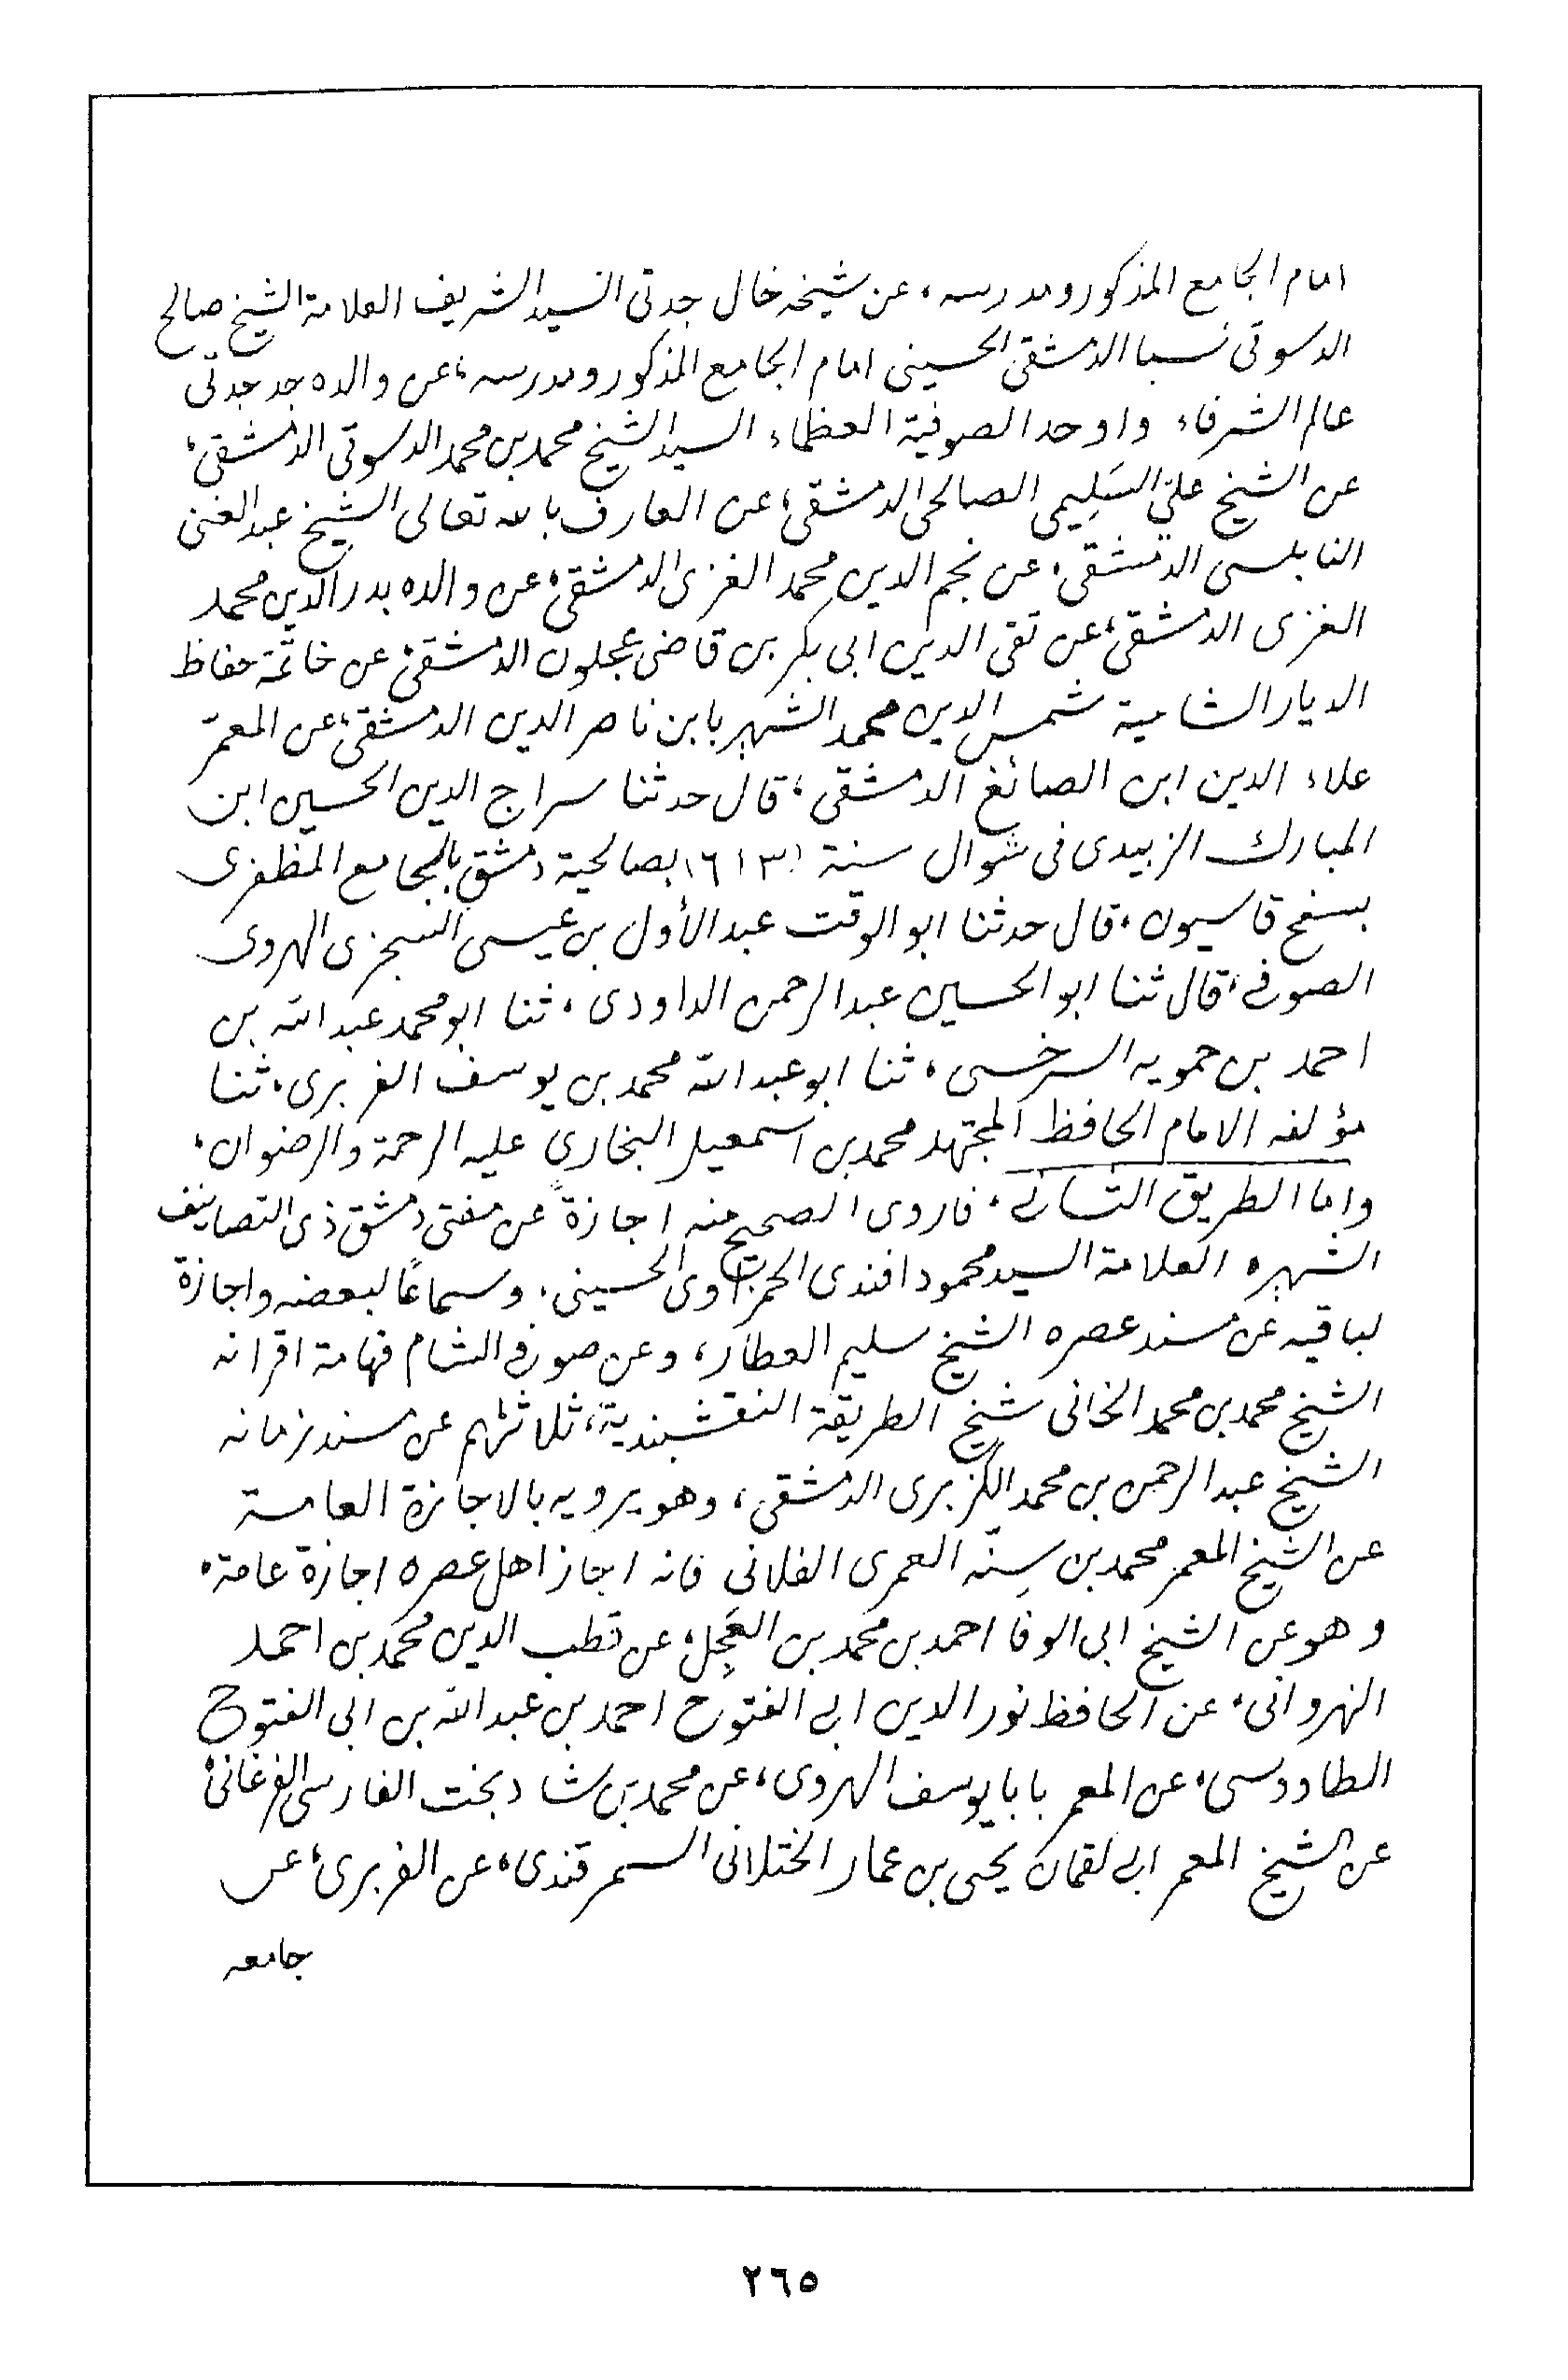 امام الجامع المذكور ومدرسه، عن شيخه خال جدتى السيد الشريف العلامة الشيخ صالح
الدسوقى نسبا الدمشقى الحسينى امام الجامع المذكور ومدرسه، عن والده جد جدتى
عالم الشرفاء واوحد الصوفية العظماء السيد الشيخ محمد بن محمد الدسوقى الدمشقى،
عن الشيخ على السَلِيمى الصالحى الدمشقى، عن العارف بالله تعالى الشيخ عبد الغنى
النابلسى الدمشقى، عن نجم الدين محمد الغزى الدمشقى، عن والده بدر الدين محمد
الغزى الدمشقى، عن تقى الدين ابى بكر بن قاضى عجلون الدمشقى، عن خاتمة حفاظ
الديار الشامية شمس الدين محمد الشهير بابن ناصر الدين الدمشقى، عن المعمّر
علاء الدين ابن الصائغ الدمشقى، قال حدثنا سراج الدين الحسين ابن
المبارك الزبيدى فى شوال سنة (٦١٣) بصالحية دمشق بالجامع المظفرى
بسفح قاسيون، قال حدثنا ابو الوقت عبد الأول بن عيسى السجزى الهروى
الصوفى، قال ثنا ابو الحسين عبد الرحمن الداودى، ثنا ابو محمد عبد الله بن
احمد بن حمويه السرخسى، ثنا ابو عبد الله محمد بن يوسف الفربرى، ثنا
مؤلفه الامام الحافظ المجتهد محمد بن اسمعيل البخارى عليه الرحمة والرضوان،
واما الطريق الثانى، فاروى الصحيح منه اجازةً عن مفتى دمشق ذى التصانيف
الشهيره العلامة السيد محمود افندى الحمزاوى الحسينى. وسماعًا لبعضه واجازة
لباقيه عن مسند عصره الشيخ سليم العطار، وعن صوفى الشام فهامة اقرانه
الشيخ محمد بن محمد الخانى شيخ الطريقة النقشبندية، ثلاثتهم عن مسند زمانه
الشيخ عبد الرحمن بن محمد الكزبرى الدمشقى، وهو يرويه بالاجازة العامة
عن الشيخ المعمر محمد بن سِنّه العمرى الفلانى فانه اجاز اهل عصره اجازة عامة،
وهو عن الشيخ ابى الوفا احمد بن محمد بن العَجِل، عن قطب الدين محمد بن احمد
النهروانى، عن الحافظ نور الدين ابى الفتوح احمد بن عبد الله بن ابى الفتوح
الطاووسى، عن المعمر بابا يوسف الهروى، عن محمد بن شاد بخت الفارسى الفرغانى،
عن الشيخ المعمر ابى لقمان يحيى بن عمار الختلانى السمرقندى، عن الفربرى، عن
جامعه
٢٦٥